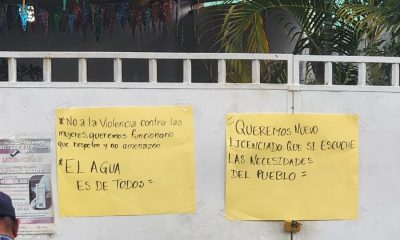 * No a la Violencia contra las
mujeres, queremos funcionario
que respeten y no amenazen
* EL AGUA
ES DE TODOS =
QUEREMOS NUEVO
LICENCIADO QUE SI ESCUCHE
LAS NECESIDADES
DEL PUEBLO =
¡ATENCIÓN!